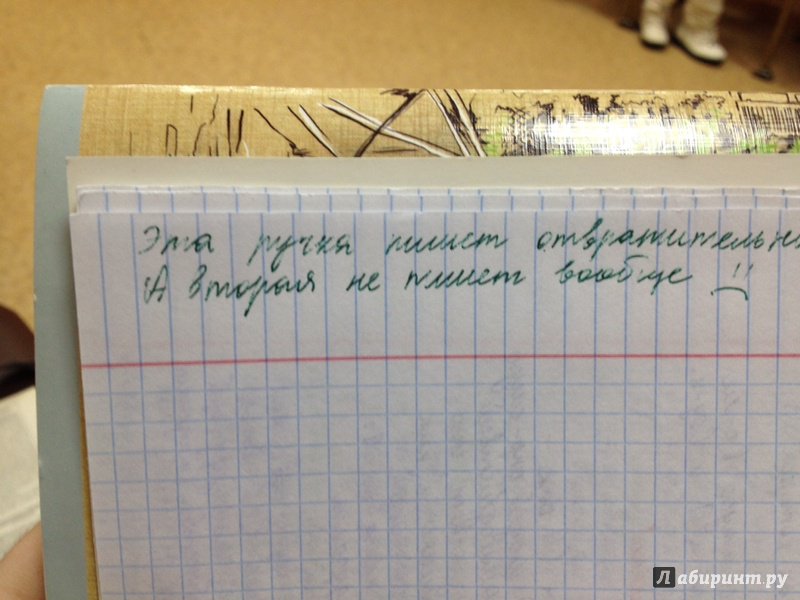 Эта ручка пишет отвратительн
А вторая не пишет вообще !!
Лабиринт.ру